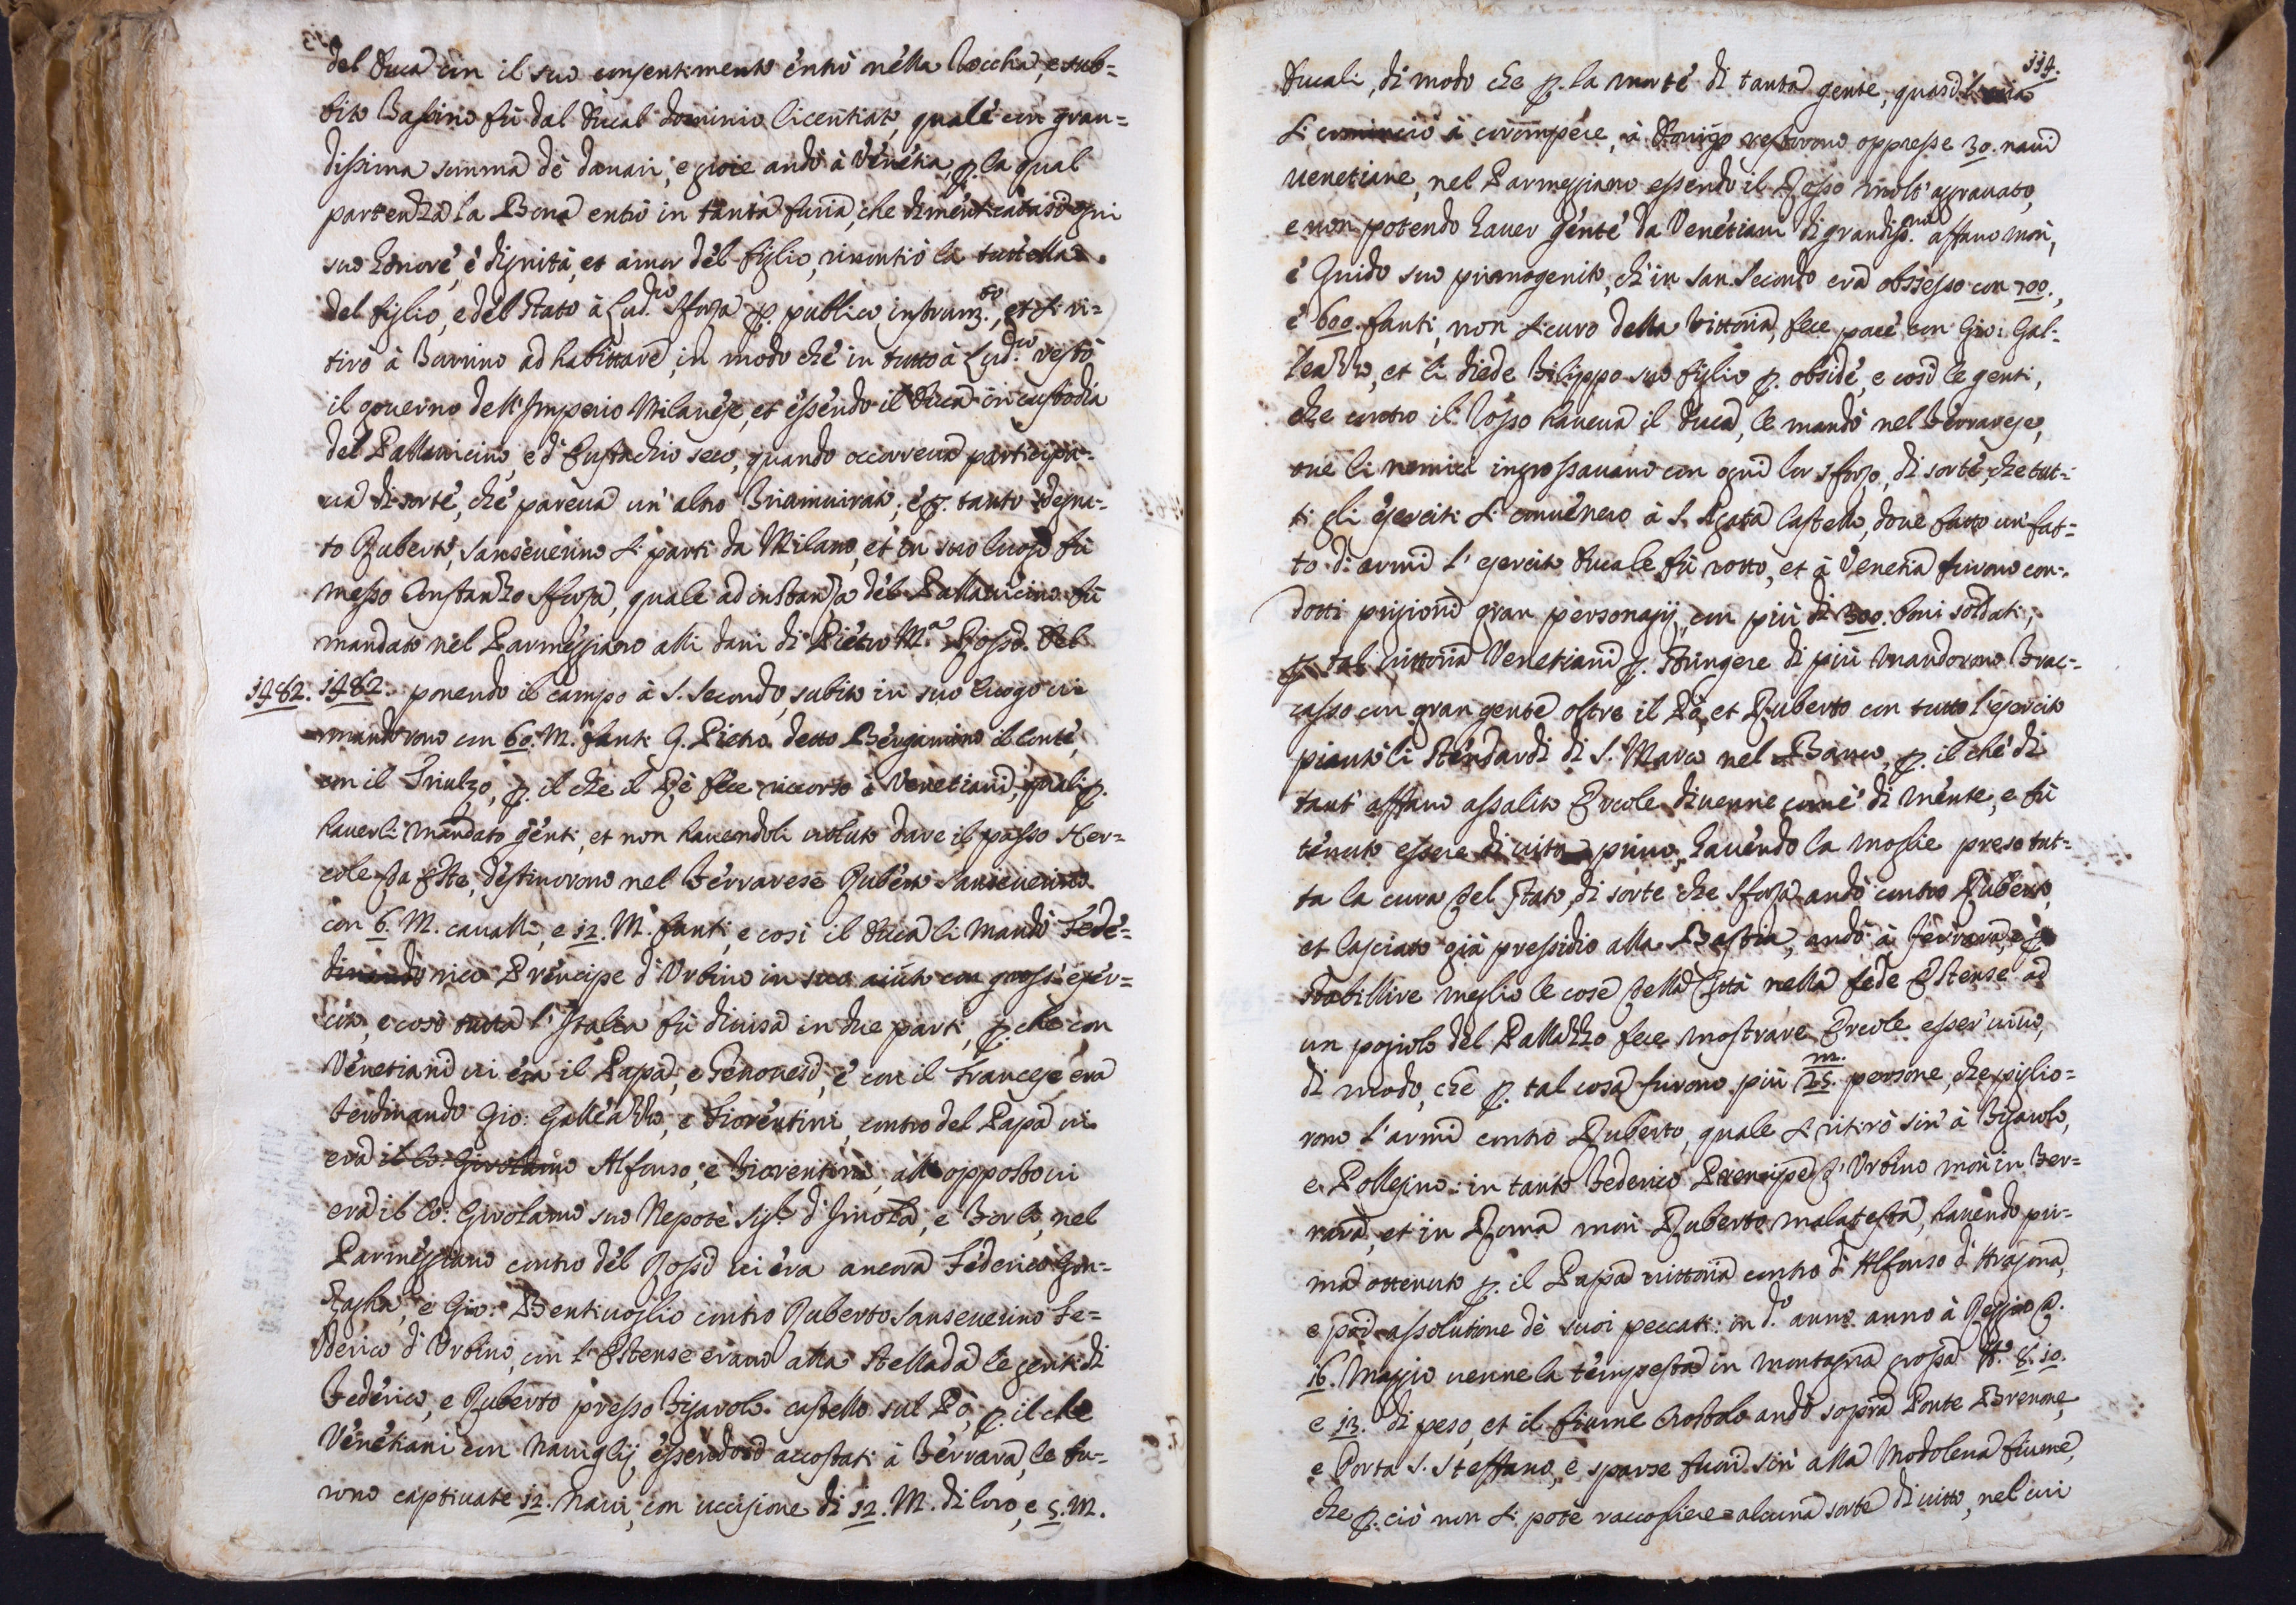 del Duca con il suo consentimento entrò nella Roccha, e sub=
bito Bassino fù dal Ducal dominio licentiato, quale con gran=
dissima summa de danari, e gioie andò à Venetia, p. la qual
partenza la Bona entrò in tanta furia, che dimenticatasi ogni
suo honore, e dignità, et amor del figlio, rinontiò la tuttella
del figlio, e del Stato à Lud.co Sforza p. publico instrum.to, et si ri=
tirò à ad habittare, in modo che in tutto à Lud.co restò
il governo dell'Imperio Milanese, et essendo il Duca in custodia
del Pallavicino, e d'Eustachio seco, quando occorreua participa=
ua di sorte, che pareua un'altro e p. tanto sdegna=
to Ruberto Sanseuerino si partì da Milano, et in suo luogo fù
messo Constanzo Sforza, quale ad instanza del Pallauicino fù
mandato nel Parmeggiano alli dani di Pietro M.a Rosso. Del
1482. 1482. ponendo il campo à S. Secondo, subito in suo luogo ui
mandorono con 60. M. fanti G. Pietro detto Bergamino il Conte,
con il Triulzo, p. il che il Rè fece riccorso à Venetiani, quali p.
hauerli mandato genti, et non hauendoli uoluto dare il passo Her=
cole da Este, destinorono nel Ferrarese Ruberto Sanseuerino
con 6. M. caualli, e 12. M. fanti, e così il Duca li mandò Fede=
rico Prencipe d'Urbino in suo aiuto con grossi exer=
citi, e così tutta l'Italia fù diuisa in due parti, p. che con
Venetiani ui era il Papa, e Genouesi, e con il Francese era
Ferdinando Gio: Galleazzo, e Fiorentini, contro del Papa ui
era il Co: Girolamo Alfonso, e Fiorentini, all'opposto ui
era il Co: Girolamo suo Nepote Sig.r d'Imola, e Forlì, nel
Parmeggiano contro del Rossi ui era ancora Federico Gon=
zagha, e Gio: Bentiuoglio contro Ruberto Sanseuerino Fe=
derico d'Urbino, con l'Estense erano alla Stellada le genti di
Federico, e Ruberto presso Figarolo castello sul Pò, p. il che
Venetiani con Nauiglij essendosi accostati à Ferrara, le fu=
rono captiuate 12. Naui, con uccisione di 12. M. di loro, e 5. M.
114.
Ducali, di modo che p. la morte di tanta gente, quasi l'aria
si cominciò à corompere, à restorono oppresse 30. naui
uenetiane, nel Parmeggiano essendo il Rosso molt'aggrauato,
e non potendo hauer gente da Venetiani di grandiss.mo affano morì,
e Guido suo primogenito, ch'in San Secondo era obssesso con 700.,
e 600. fanti, non sicuro della vittoria, fece pace con Gio: Gal=
leazzo, et li diede Filippo suo figlio p. obside, e così le genti,
che contro il Rosso haueua il Duca, le mandò nel Ferrarese,
oue li nemici ingrossauano con ogni lor sforzo, di sorte, che tut=
ti gli eserciti si conuenero à S. Agata Castello, doue fatto un fat=
to di armi l'esercito Ducale fù rotto, et à Venetia furono con=
dotti prigioni gran personagij, con più di 300. boni soldati,
p. tal uittoria Venetiani p. stringere di più mandorono Frac=
casso con gran gente oltre il Pò, et Ruberto con tutto l'esercito
piantò li stendardi di S. Marco nel Barco, p. il che di
tant'affano assalito Ercole diuenne come di mente, e fù
tenuto essere di uita priuo, hauendo la moglie preso tut=
ta la cura del Stato, di sorte che Sforza andò contro Ruberto,
et lasciato già pressidio alla Bastia, andò à Ferrara, e p.
stabillire meglio le cose della Città nella fede Estense ad
un pogiolo del Pallazzo fece mostrare Ercole esser uiuo,
di modo, che p. tal cosa furono più 25. m. persone, che piglio=
rono l'armi contro Ruberto, quale si ritirò sin'à Figarolo,
e Pollesino: in tanto Federico Prencipe d'Urbino morì in Fer=
rara, et in Roma morì Ruberto Malatesta, hauendo pri=
ma ottenuto p. il Papa uittoria contro d'Alfonso d'Aragona,
e poi assolutione de suoi peccati: in d.o anno anno à Reggio a.
16. Maggio uenne la tempesta in montagna grossa 8. 10.
e 13. di peso, et il fiume Crostolo andò sopra Ponte Brenone,
e Porta S. Steffano, e sparse fuori sin'alla Modolena fiume,
che p. ciò non si potè raccogliere alcuna sorte di uitto, nel cui